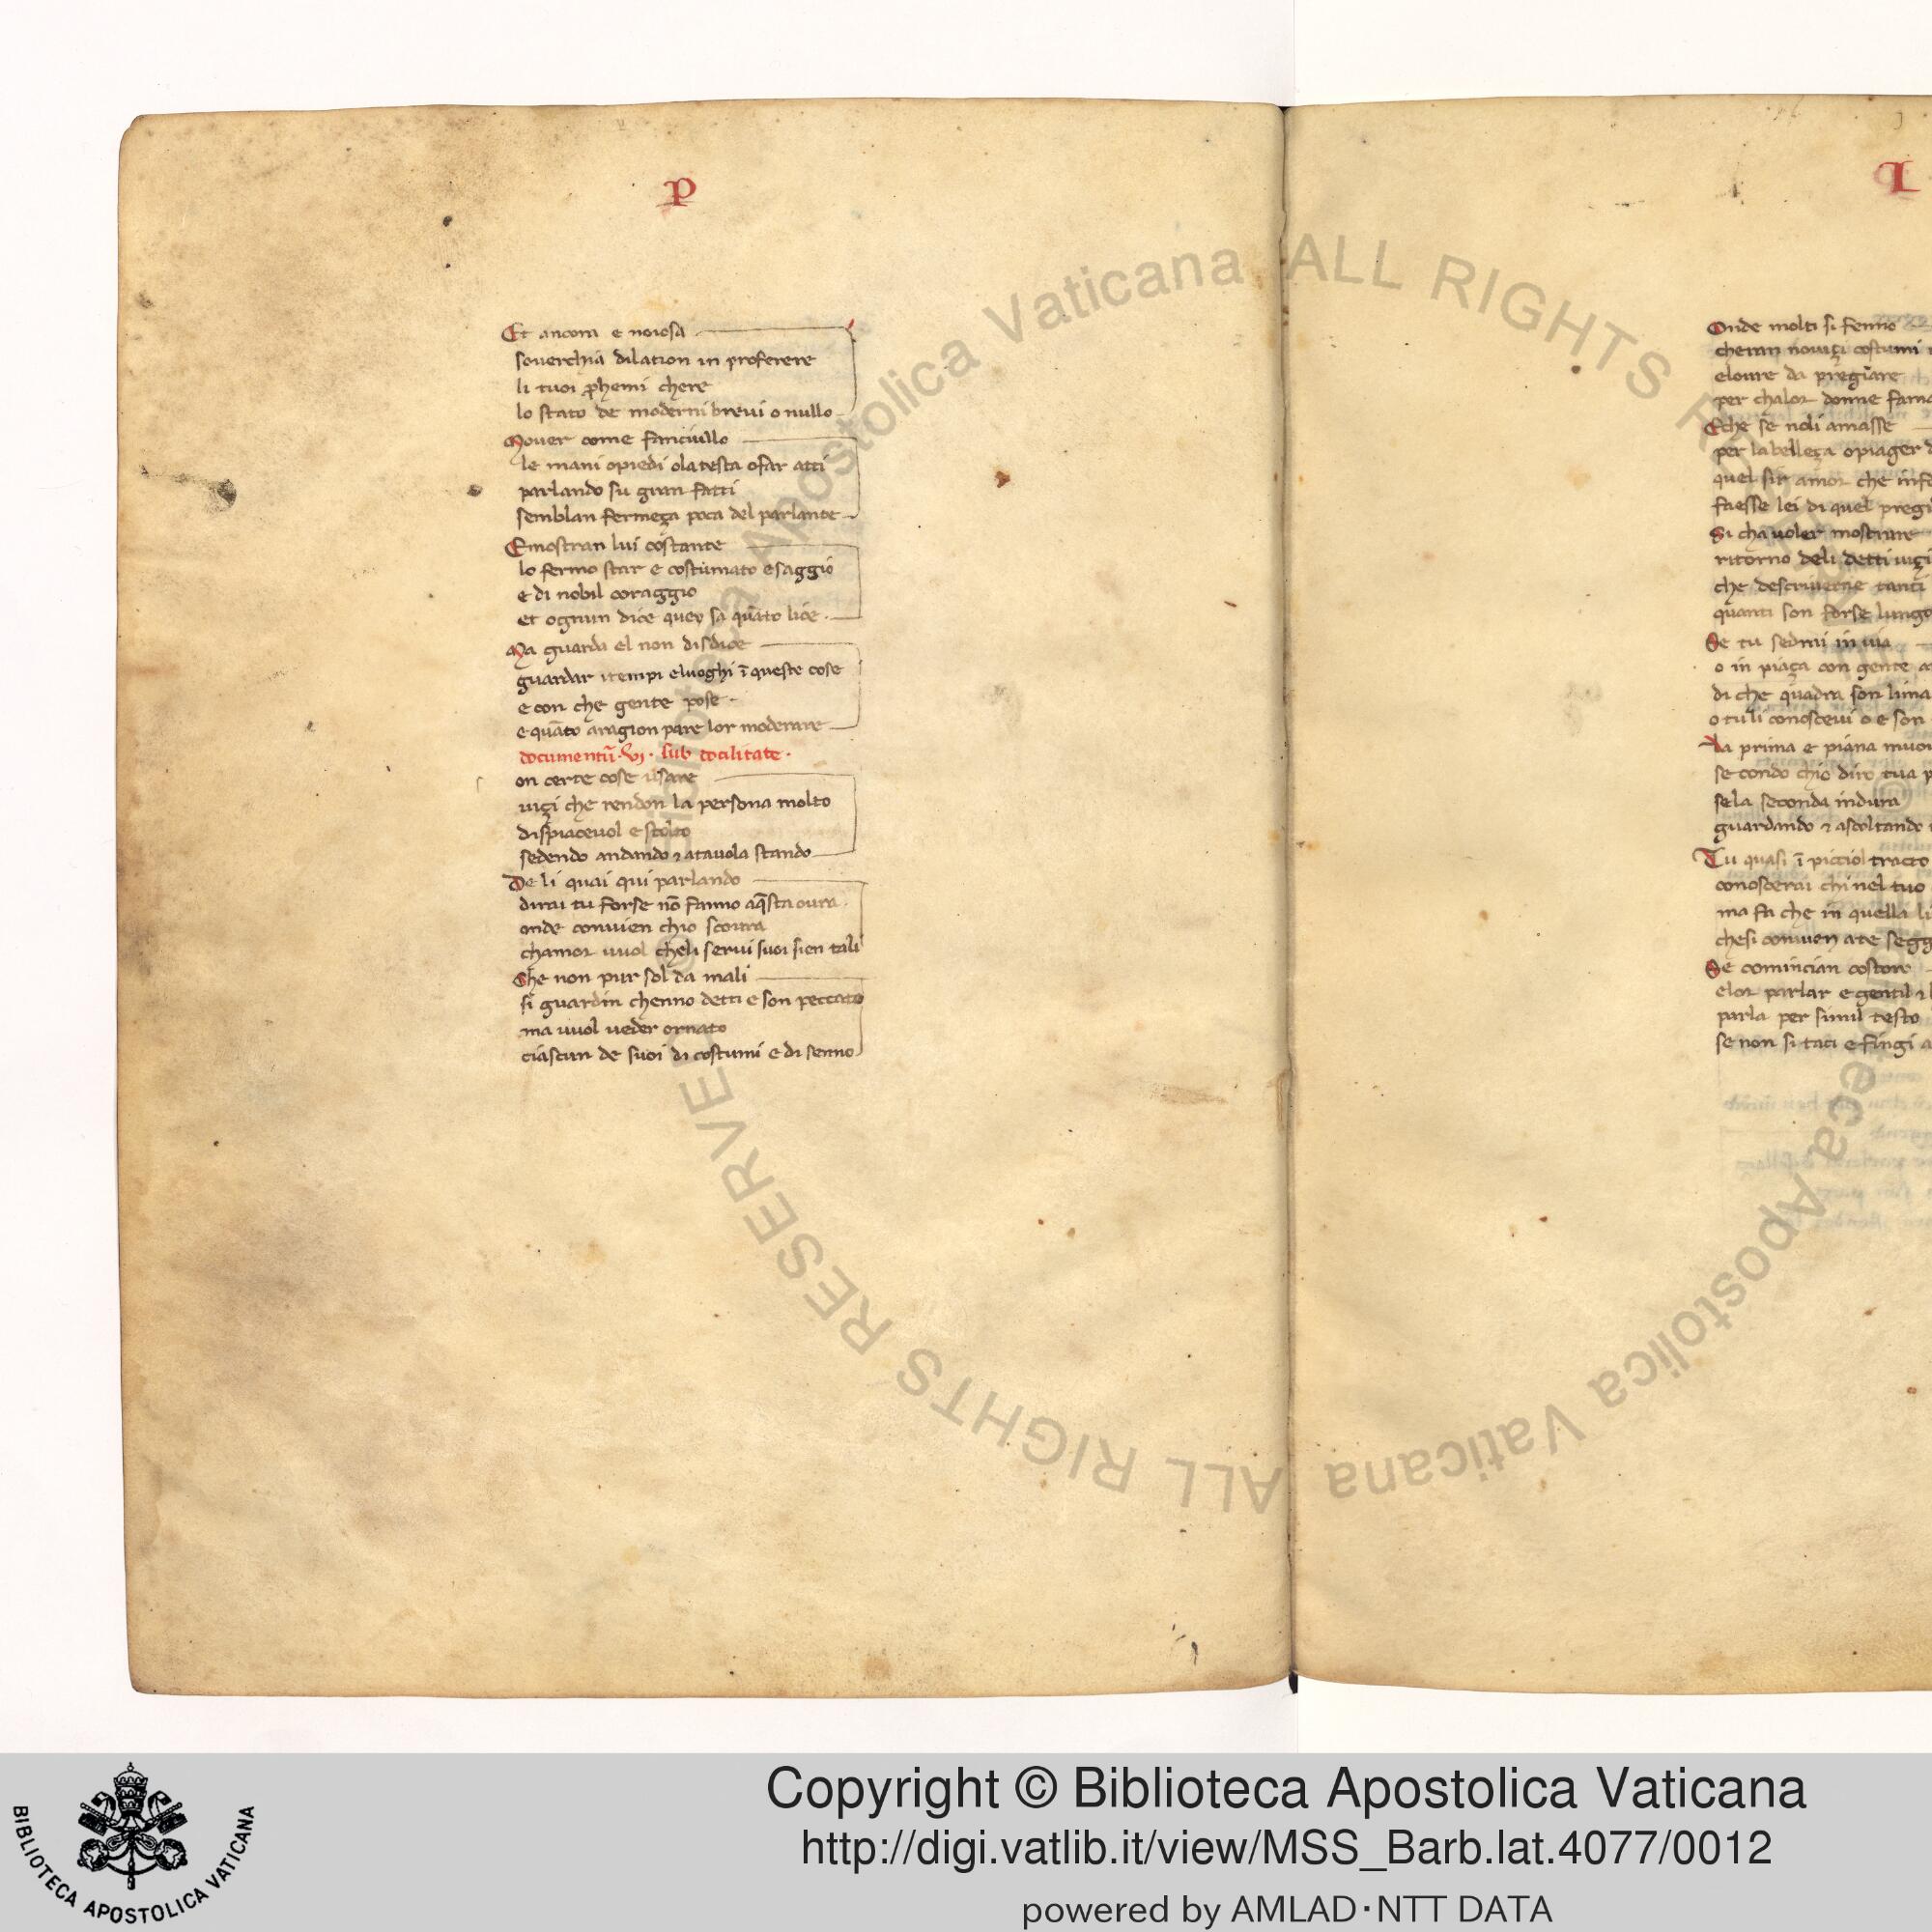 P
Et ancora e noiosa
souerchia dilation in proferere
li tuoi prohemi chere
lo stato de moderni breui o nullo
Mouer come fanciullo
le mani opiedi olatesta ofar atti
parlando su gran fatti
semblan fermeça poca del parlante
Emostran lui costante
lo fermo star e costumato esaggio
e di nobil coraggio
et ognun dice quey sa quāto lice
Ma guarda el non disdice
guardar itempi eluoghi ī queste cose
e con che gente pose
e quāto aragion pare lor moderare
documentū · vi · sub docilitate ·
on certe cose usare
uiçi che rendon la persona molto
dispiaceuol e stolto
sedendo andando ⁊ atauola stando
De li quai qui parlando
dirai tu forse nō fanno aq̄sta oura
onde conuien chio scoura
chamor uuol cheli serui suoi sien tali
Che non pur sol da mali
si guardin chenno detti e son peccato
ma uuol ueder ornato
ciascun de suoi di costumi e di senno
Onde molti si fenno
cheran nouiçi costumi
eloure da pregiare
per chalor donne fama
Eche se noli amasse
per labelleça opiager
quel sir amor che
faesse lei di quel pregi
Si cha uoler mostrare
ritorno deli detti uiçi
che descriuerne tanti
quanti son forse lungo
Se tu sedrai in uia
o in piaça con gente
di che quadra son lima
o tu li conosceui o e son
La prima e piana muou
secondo chio diro tua
sela seconda indura
guardando ⁊ ascoltando
Tu quasi ī picciol tracto
conoscerai chi nel tuo
ma fa che in quella li
chesi conuen ate segg
Se comincian costoro
elor parlar e gentil ⁊
parla per simil testo
se non si taci e fingi
Biblioteca Apostolica Vaticana ALL RIGHTS RESERVED
Copyright © Biblioteca Apostolica Vaticana
http://digi.vatlib.it/view/MSS_Barb.lat.4077/0012
powered by AMLAD·NTT DATA
BIBLIOTECA APOSTOLICA VATICANA